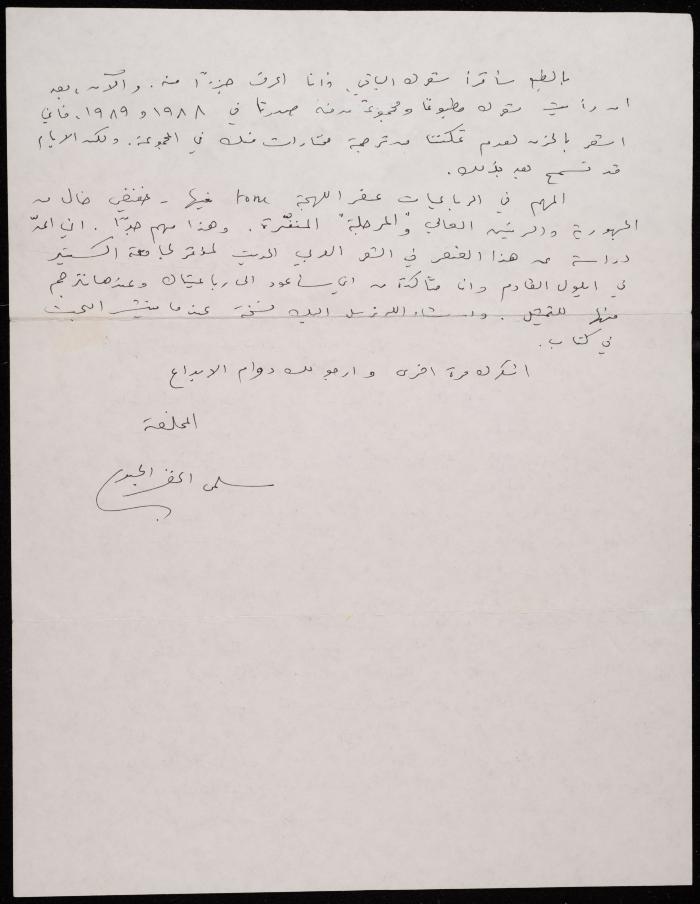 بالطبع سأقرأ شعرك الباقي، فأنا اعرف جزءًا منه. والآن، بعد
ان رأيت شعرك مطبوعًا ومجموعًا منه صدرتا في ١٩٨٨ و ١٩٨٩، فاني
اشعر بالحزن لعدم تمكننا من ترجمة مختارات منك في المجموعة. ولكن الايام
قد تسمح بعد بذلك.
المهم في الرباعيات عنصر اللهجة tone فيها - خفيض خال من
الجهورية والرنين العالي و"المرحلية" المنفّرة. وهذا مهم جدًا. اني اعدّ
دراسة عن هذا العنصر في الشعر العربي الحديث لمؤتمر لجامعة
في ايلول القادم وانا متأكدة من اني سأعود الى رباعياتك وعندها نترجم
منها للتمثيل. وان شاء الله نرسل اليك نسخة عندما ننشر البحث
في كتاب.
اشكرك مرة اخرى وارجو لك دوام الابداع
المخلصة
سلمى الخضراء الجيوسي